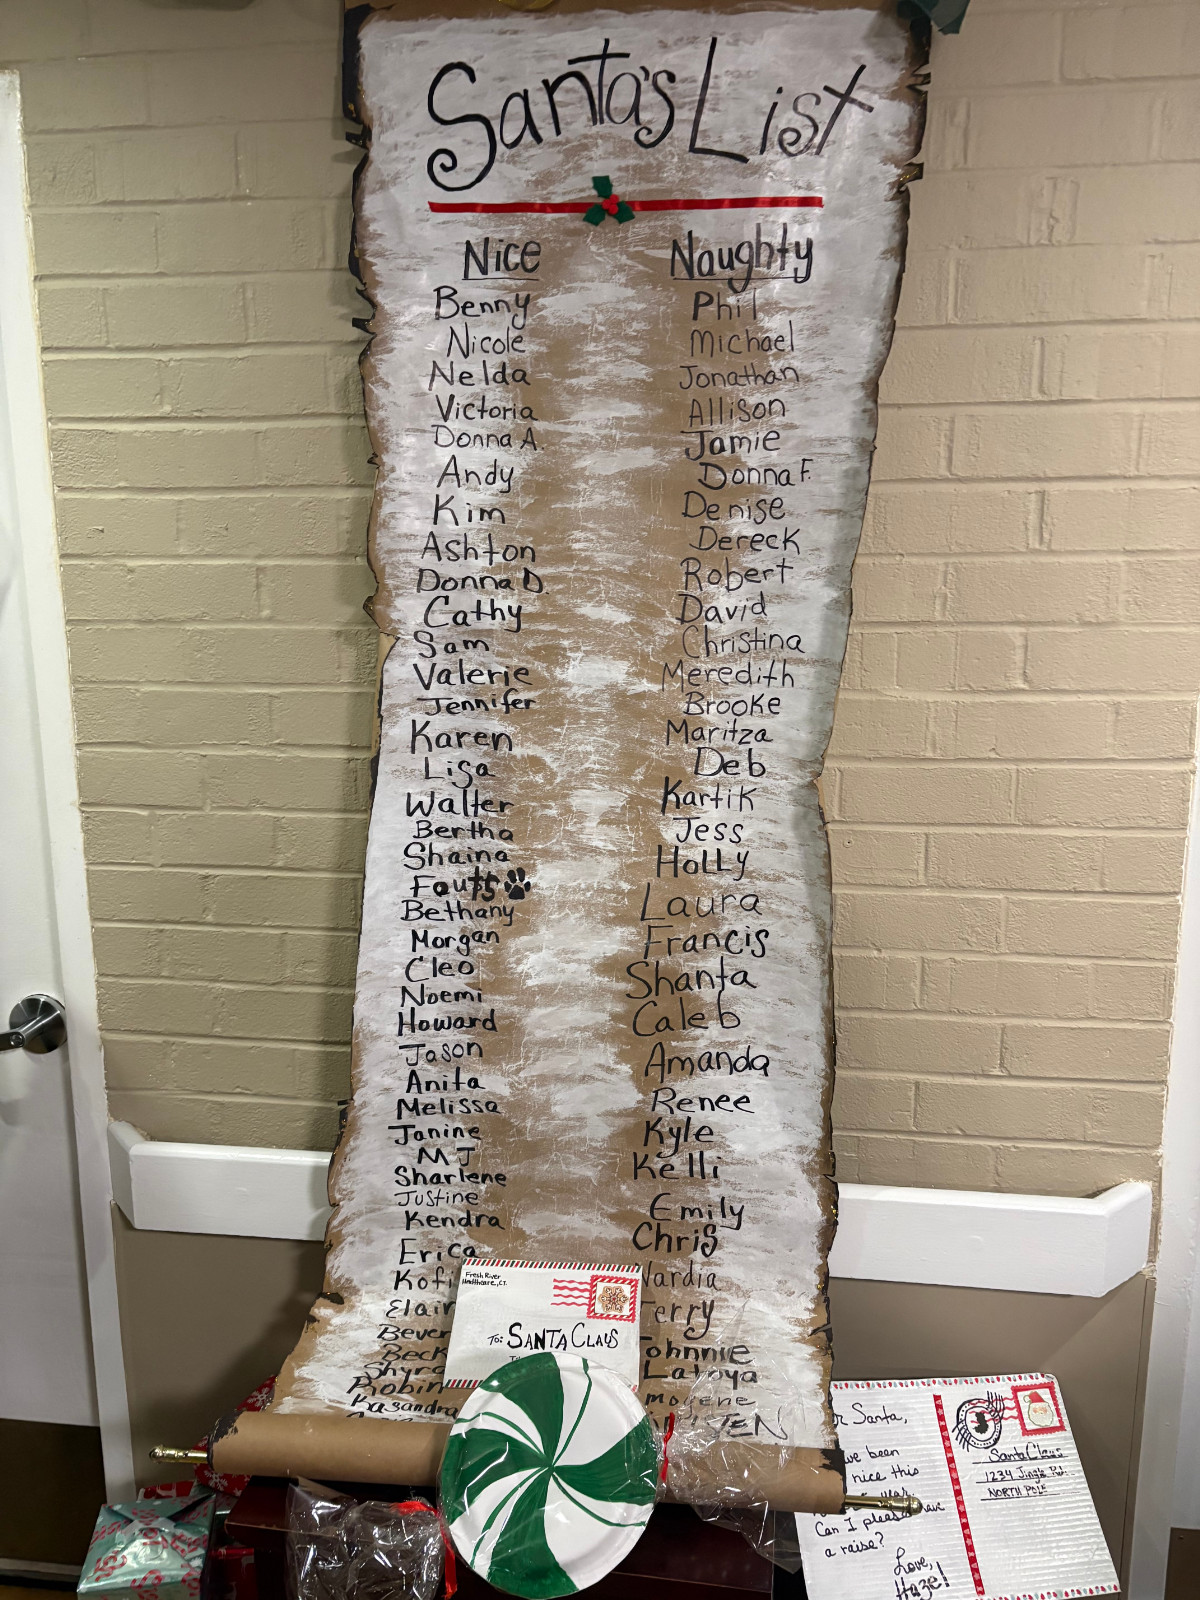 Santa's List
Nice
Benny
Nicole
Nelda
Victoria
Donna A.
Andy
Kim
Ashton
Donna D.
Cathy
Sam
Valerie
Jennifer
Karen
Lisa
Walter
Bertha
Shaina
Fouts
Bethany
Morgan
Cleo
Noemi
Howard
Jason
Anita
Melissa
Janine
MJ
Sharlene
Justine
Kendra
Erica
Kofi
Elain
Bever
Beck
Robin
Kasandra
Naughty
Phil
Michael
Jonathan
Allison
Jamie
Donna F.
Denise
Dereck
Robert
David
Christina
Meredith
Brooke
Maritza
Deb
Kartik
Jess
Holly
Laura
Francis
Shanta
Caleb
Amanda
Renee
Kyle
Kelli
Emily
Chris
Nardia
Terry
Johnnie
Latoya
Fresh River
Healthcare, CT.
To: SANTA CLAUS
Santa,
been
nice this
year.
Can I please have
a raise?
Love,
Hazel
Santa Claus
1234 Jingle Rd.
NORTH POLE